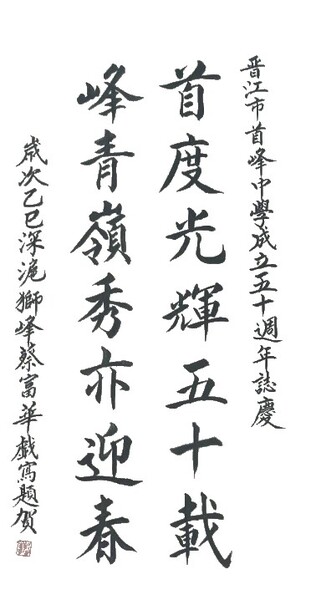 晉江市首峰中學成立五十週年誌慶
首度光輝五十載
峰青嶺秀亦迎春
歲次乙巳深滬獅峰蔡富華戲寫題賀